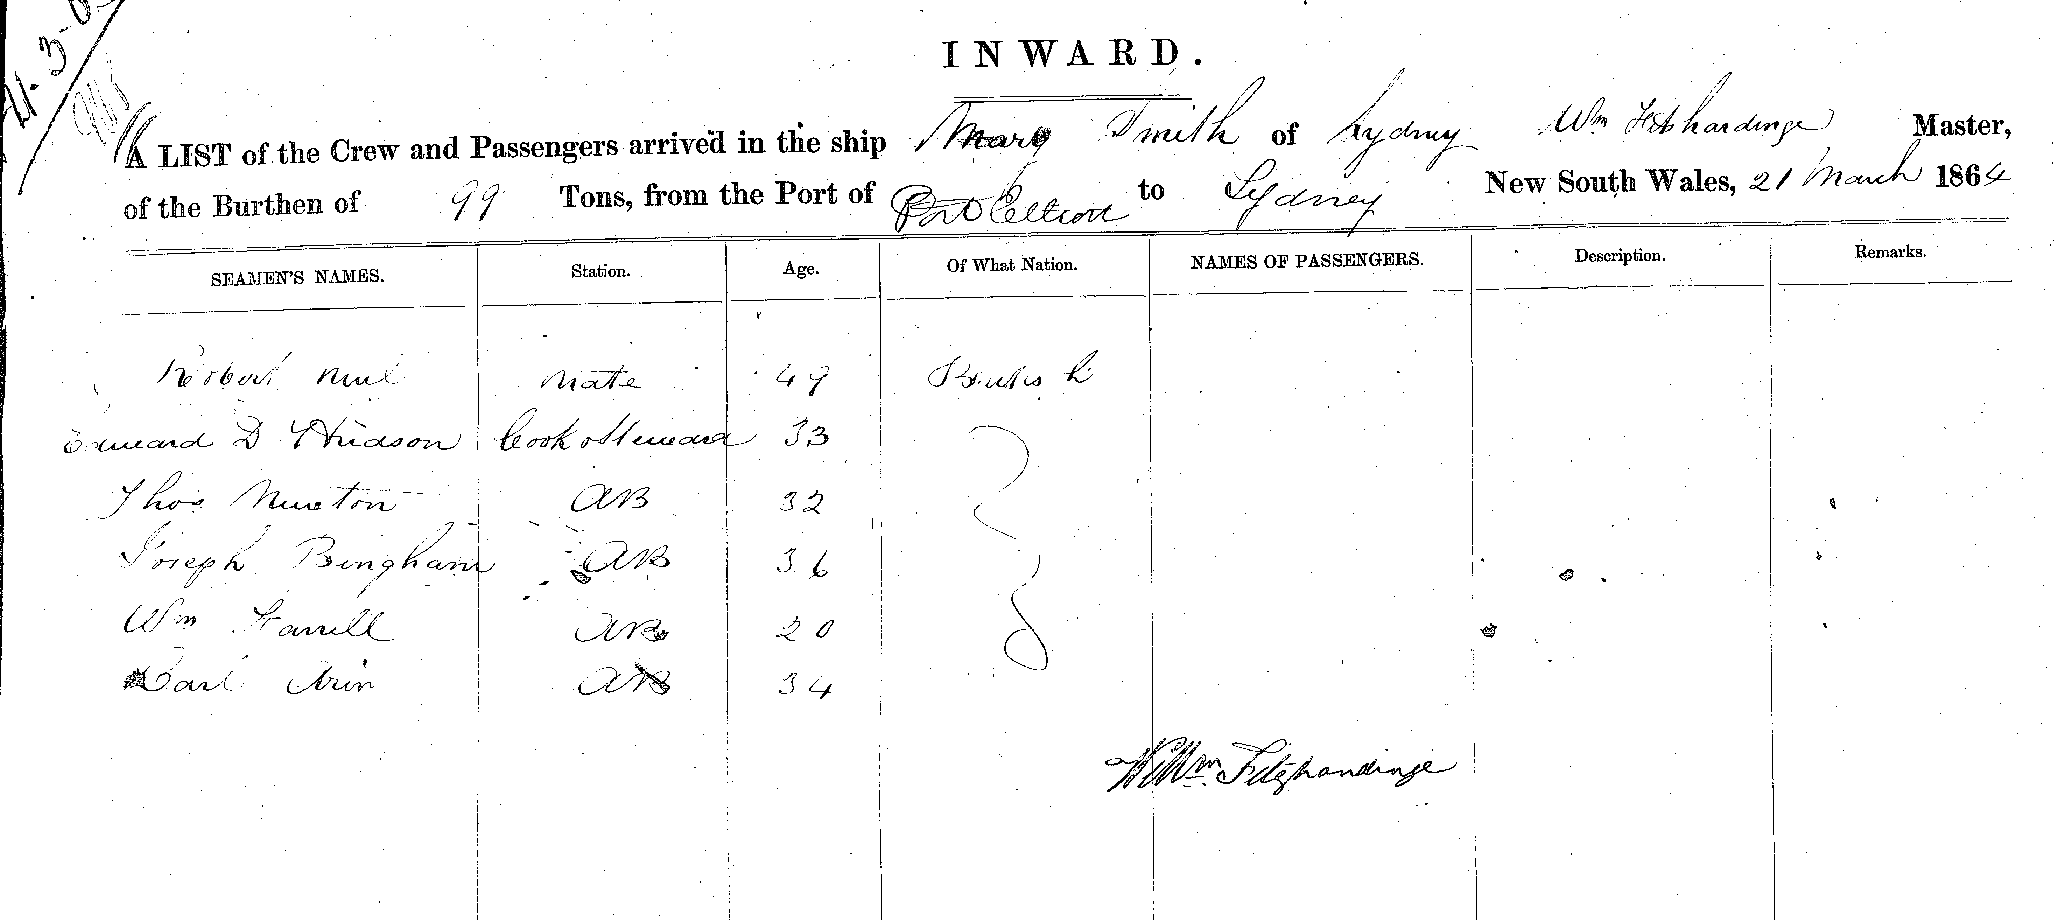 INWARD.
A LIST of the Crew and Passengers arrived in the ship Mary Smith of Sydney Wm Fitzhardinge Master,
of the Burthen of 99 Tons, from the Port of Port to Sydney New South Wales, 21 March 1864
SEAMEN'S NAMES. Station. Age. Of What Nation. NAMES OF PASSENGERS. Description. Remarks.
Robert Mate 49 British
Edward D Hudson Cook & Steward 33
Thos Newton AB 32
Joseph Bingham AB 36
Wm Farrell AB 20
Carl AB 34
Wm Fitzhardinge